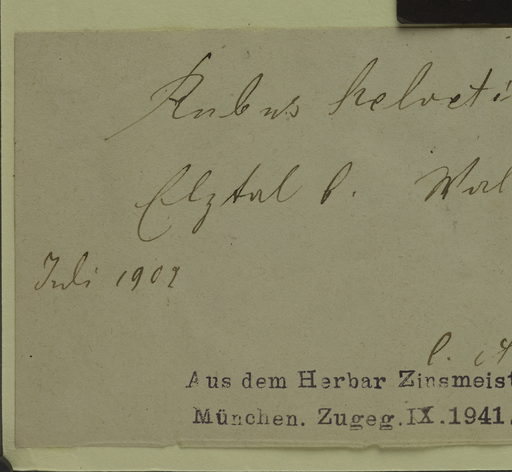 Rubus helveti
Elztal b. Wal
Juli 1909
l. A
Aus dem Herbar Zinsmeist
München. Zugeg. IX. 1941.